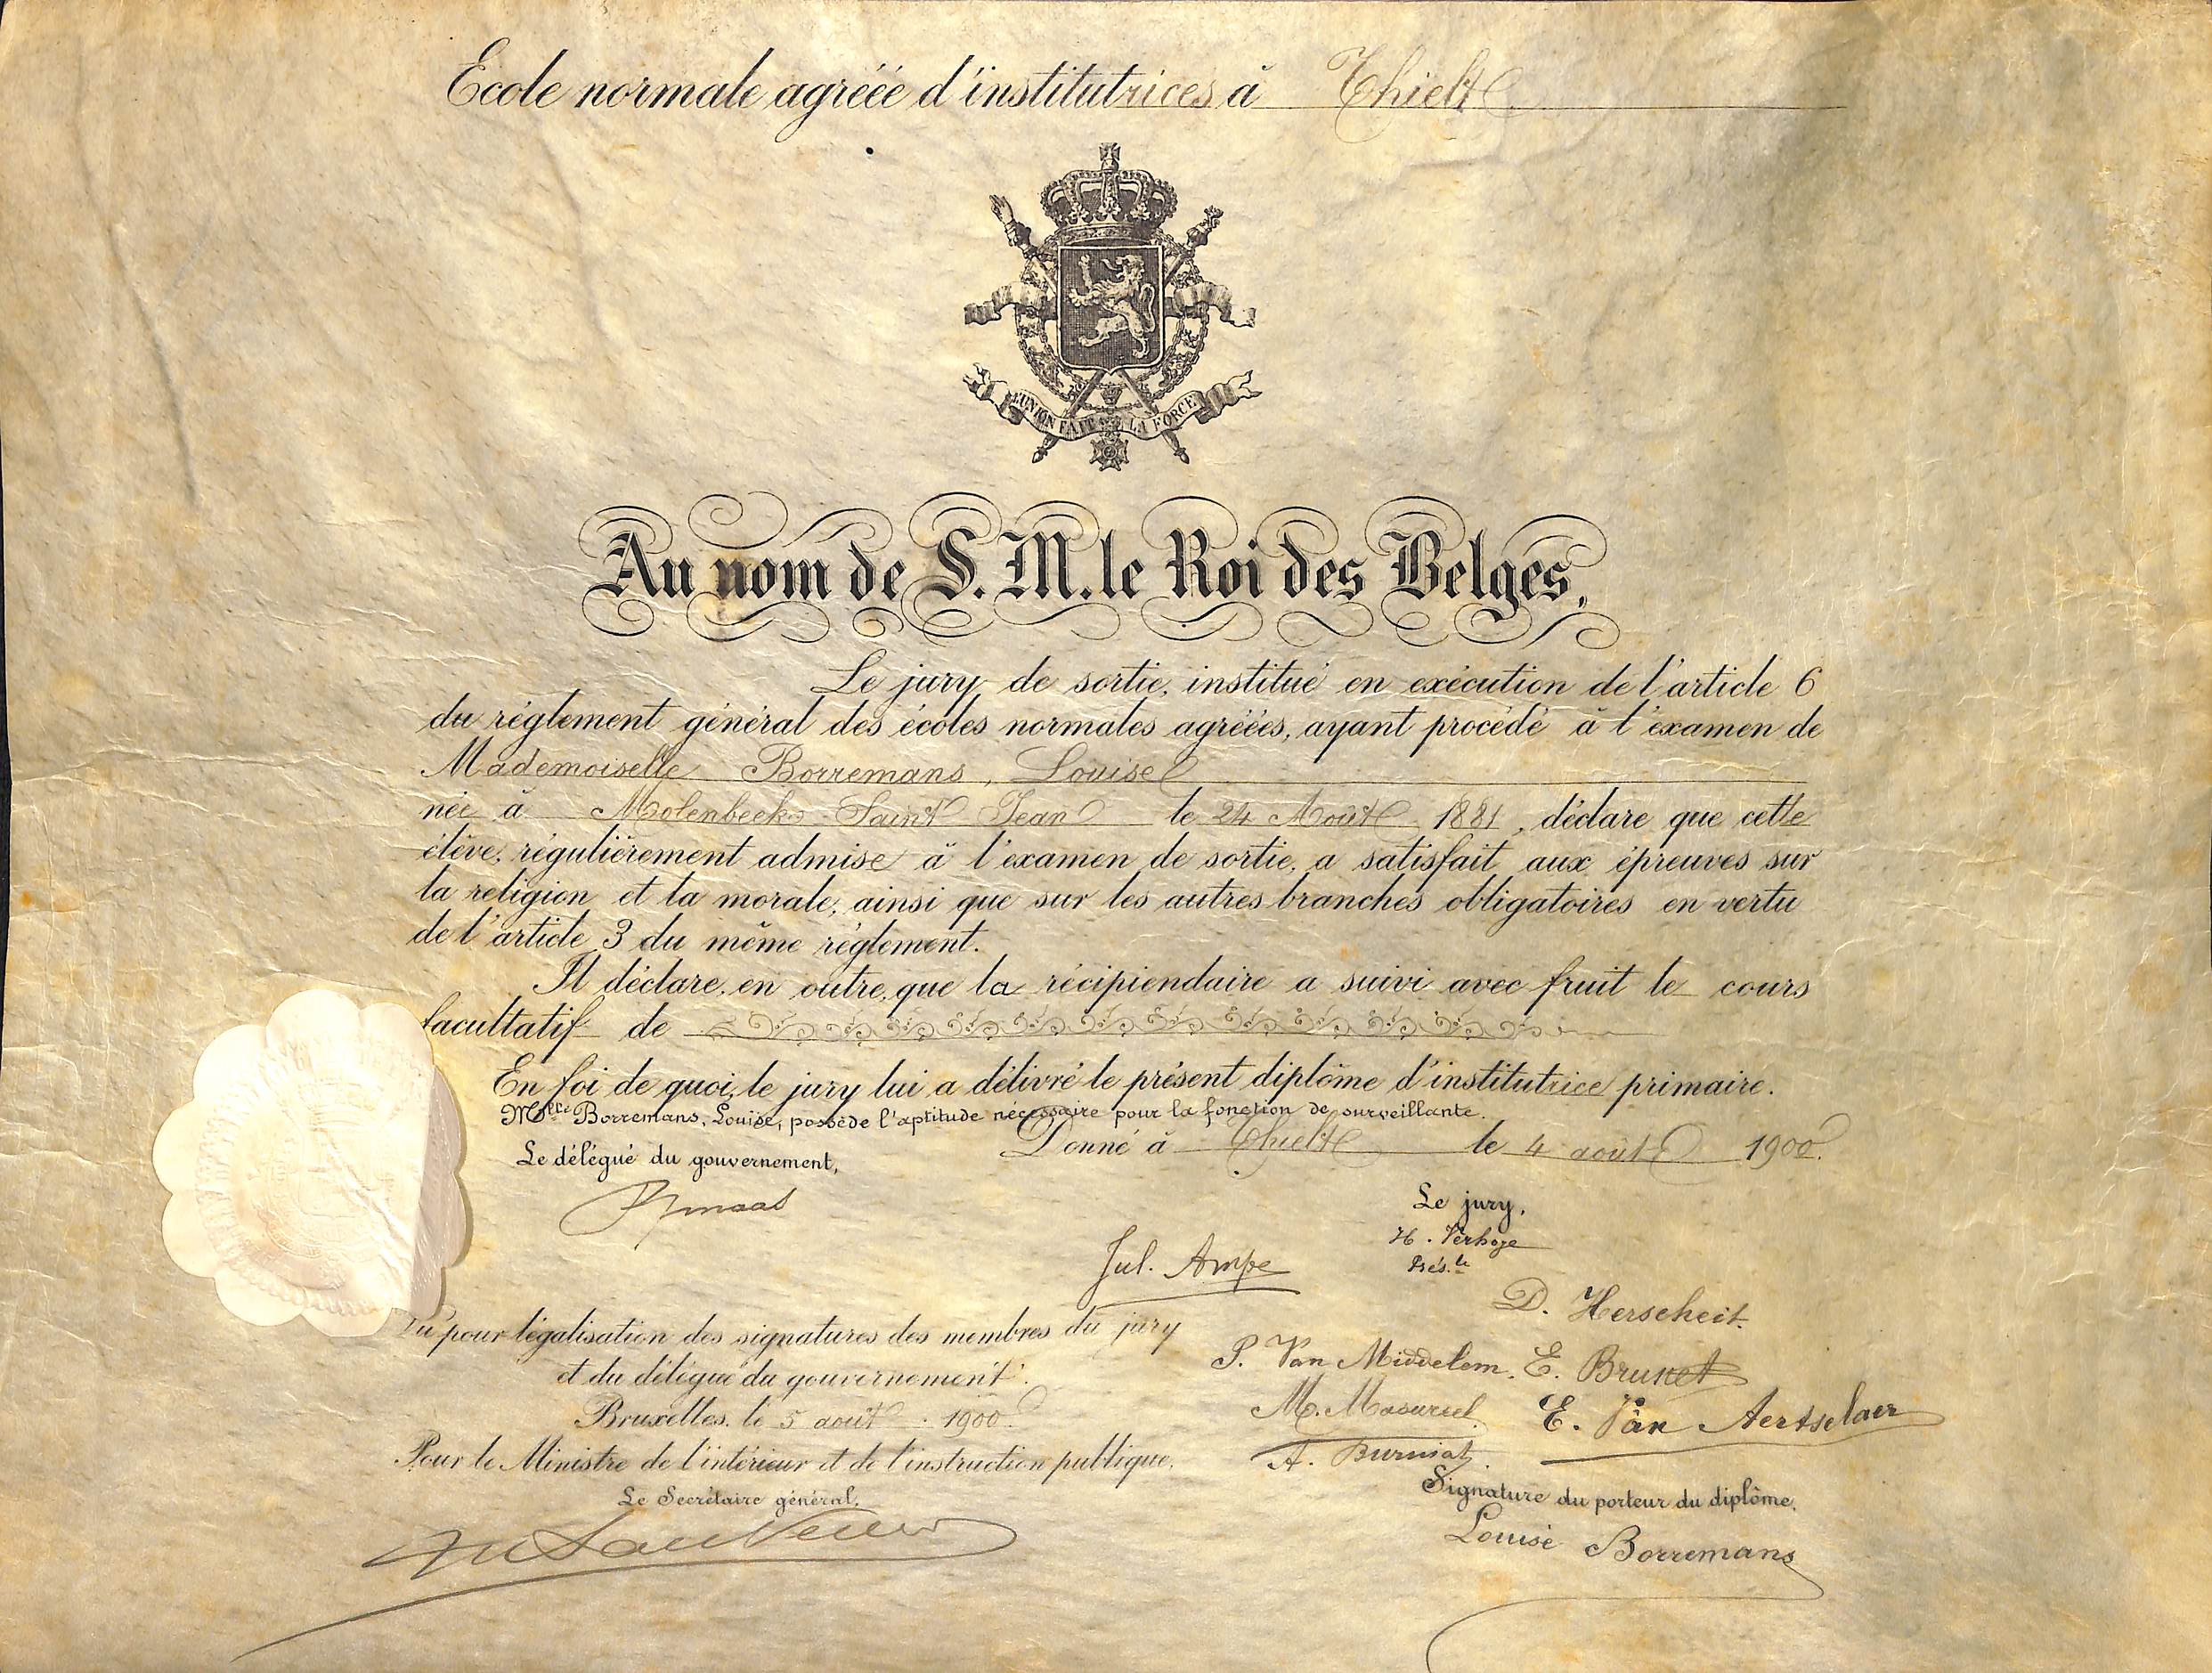 Ecole normale agréée d'institutrices à Thielt
L'UNION FAIT LA FORCE
Au nom de S. M. le Roi des Belges,
Le jury de sortie, institué en exécution de l'article 6
du règlement général des écoles normales agréées, ayant procédé à l'examen de
Mademoiselle Borremans, Louise
née à Molenbeek-Saint Jean le 24 Août 1881, déclare que cette
élève, régulièrement admise à l'examen de sortie, a satisfait aux épreuves sur
la religion et la morale, ainsi que sur les autres branches obligatoires en vertu
de l'article 3 du même règlement.
Il déclare, en outre, que la récipiendaire a suivi avec fruit le cours
facultatif de
En foi de quoi, le jury lui a délivré le présent diplôme d'institutrice primaire.
Melle Borremans, Louise, possède l'aptitude nécessaire pour la fonction de surveillante.
Donné à Thielt le 4 août 1900.
Le délégué du gouvernement,
Le jury,
H. Verhoye
Prés.te
Jul. Ampe
D. Herscheit.
Vu pour légalisation des signatures des membres du jury
et du délégué du gouvernement.
P. Van Middelem. E. Brunet
Bruxelles, le 5 août 1900.
M. Masureel. E. Van Aertselaer
Pour le Ministre de l'intérieur et de l'instruction publique,
A. Burniat.
Le Secrétaire général,
Signature du porteur du diplôme,
Louise Borremans